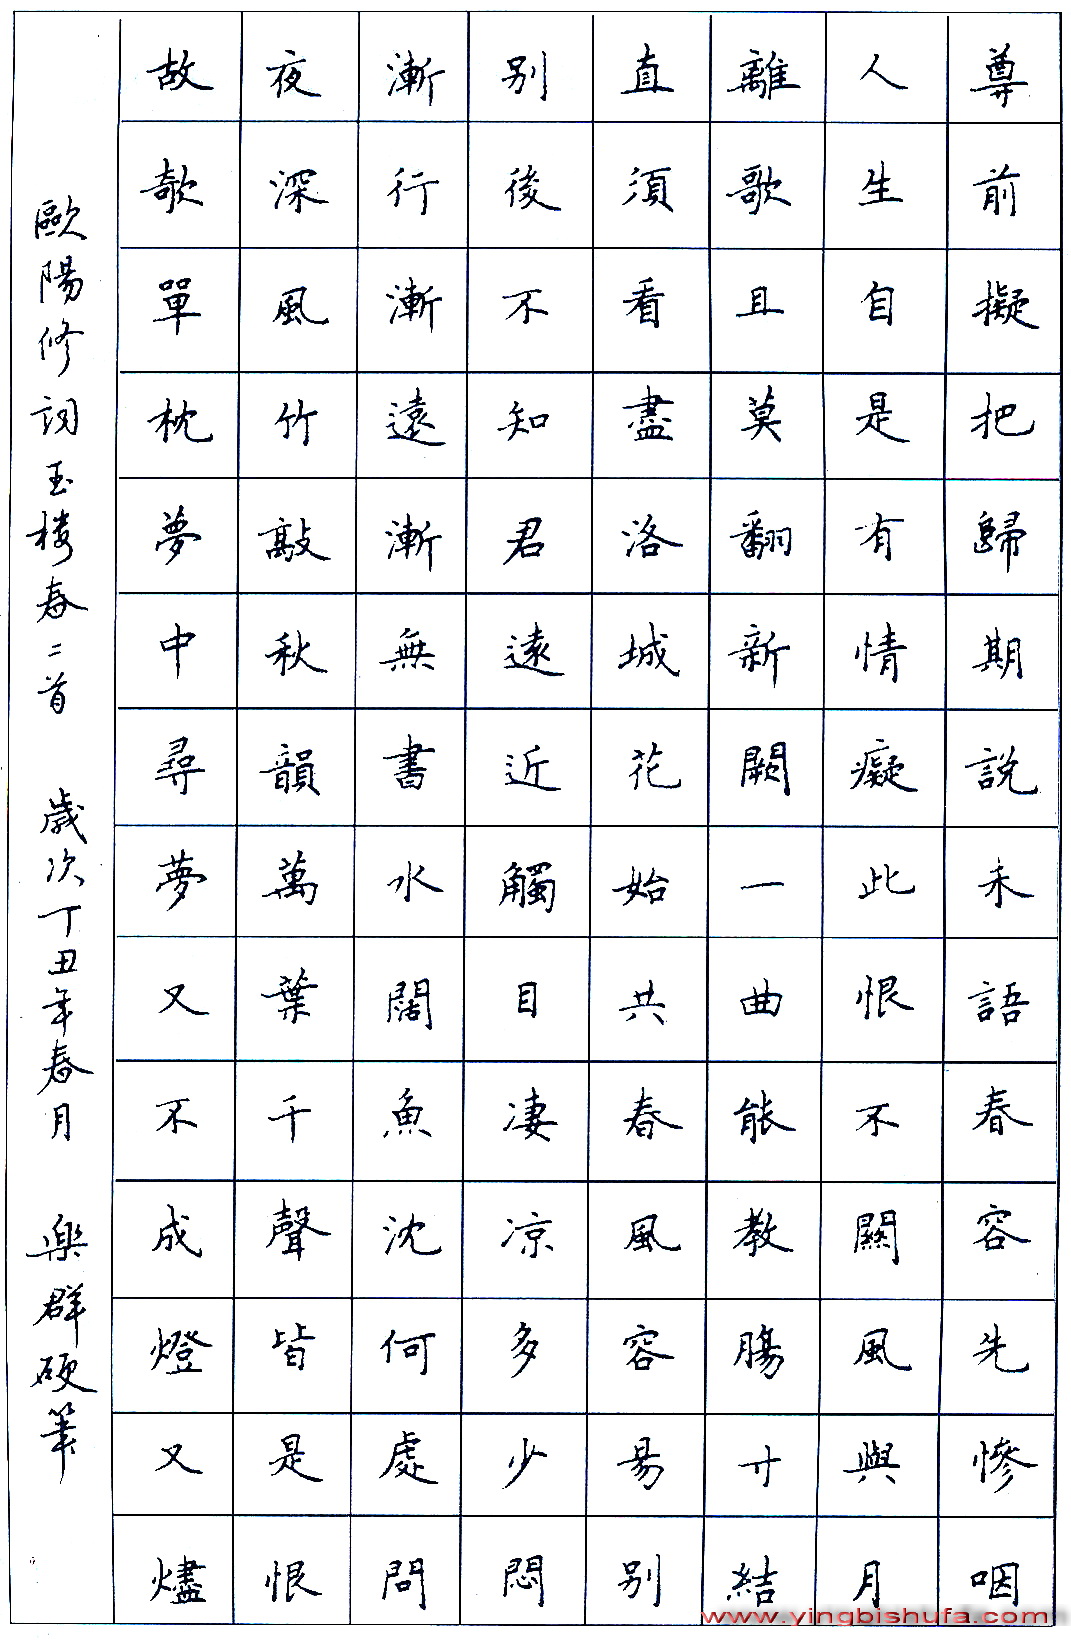 尊前擬把歸期說未語春容先慘咽
人生自是有情癡此恨不關風與月
離歌且莫翻新闋一曲能教腸寸結
直須看盡洛城花始共春風容易別
別後不知君遠近觸目凄涼多少悶
漸行漸遠漸無書水闊魚沈何處問
夜深風竹敲秋韻萬葉千聲皆是恨
故欹單枕夢中尋夢又不成燈又燼
歐陽修詞玉楼春二首 歲次丁丑年春月 樂群硬筆
www.yingbishufa.com